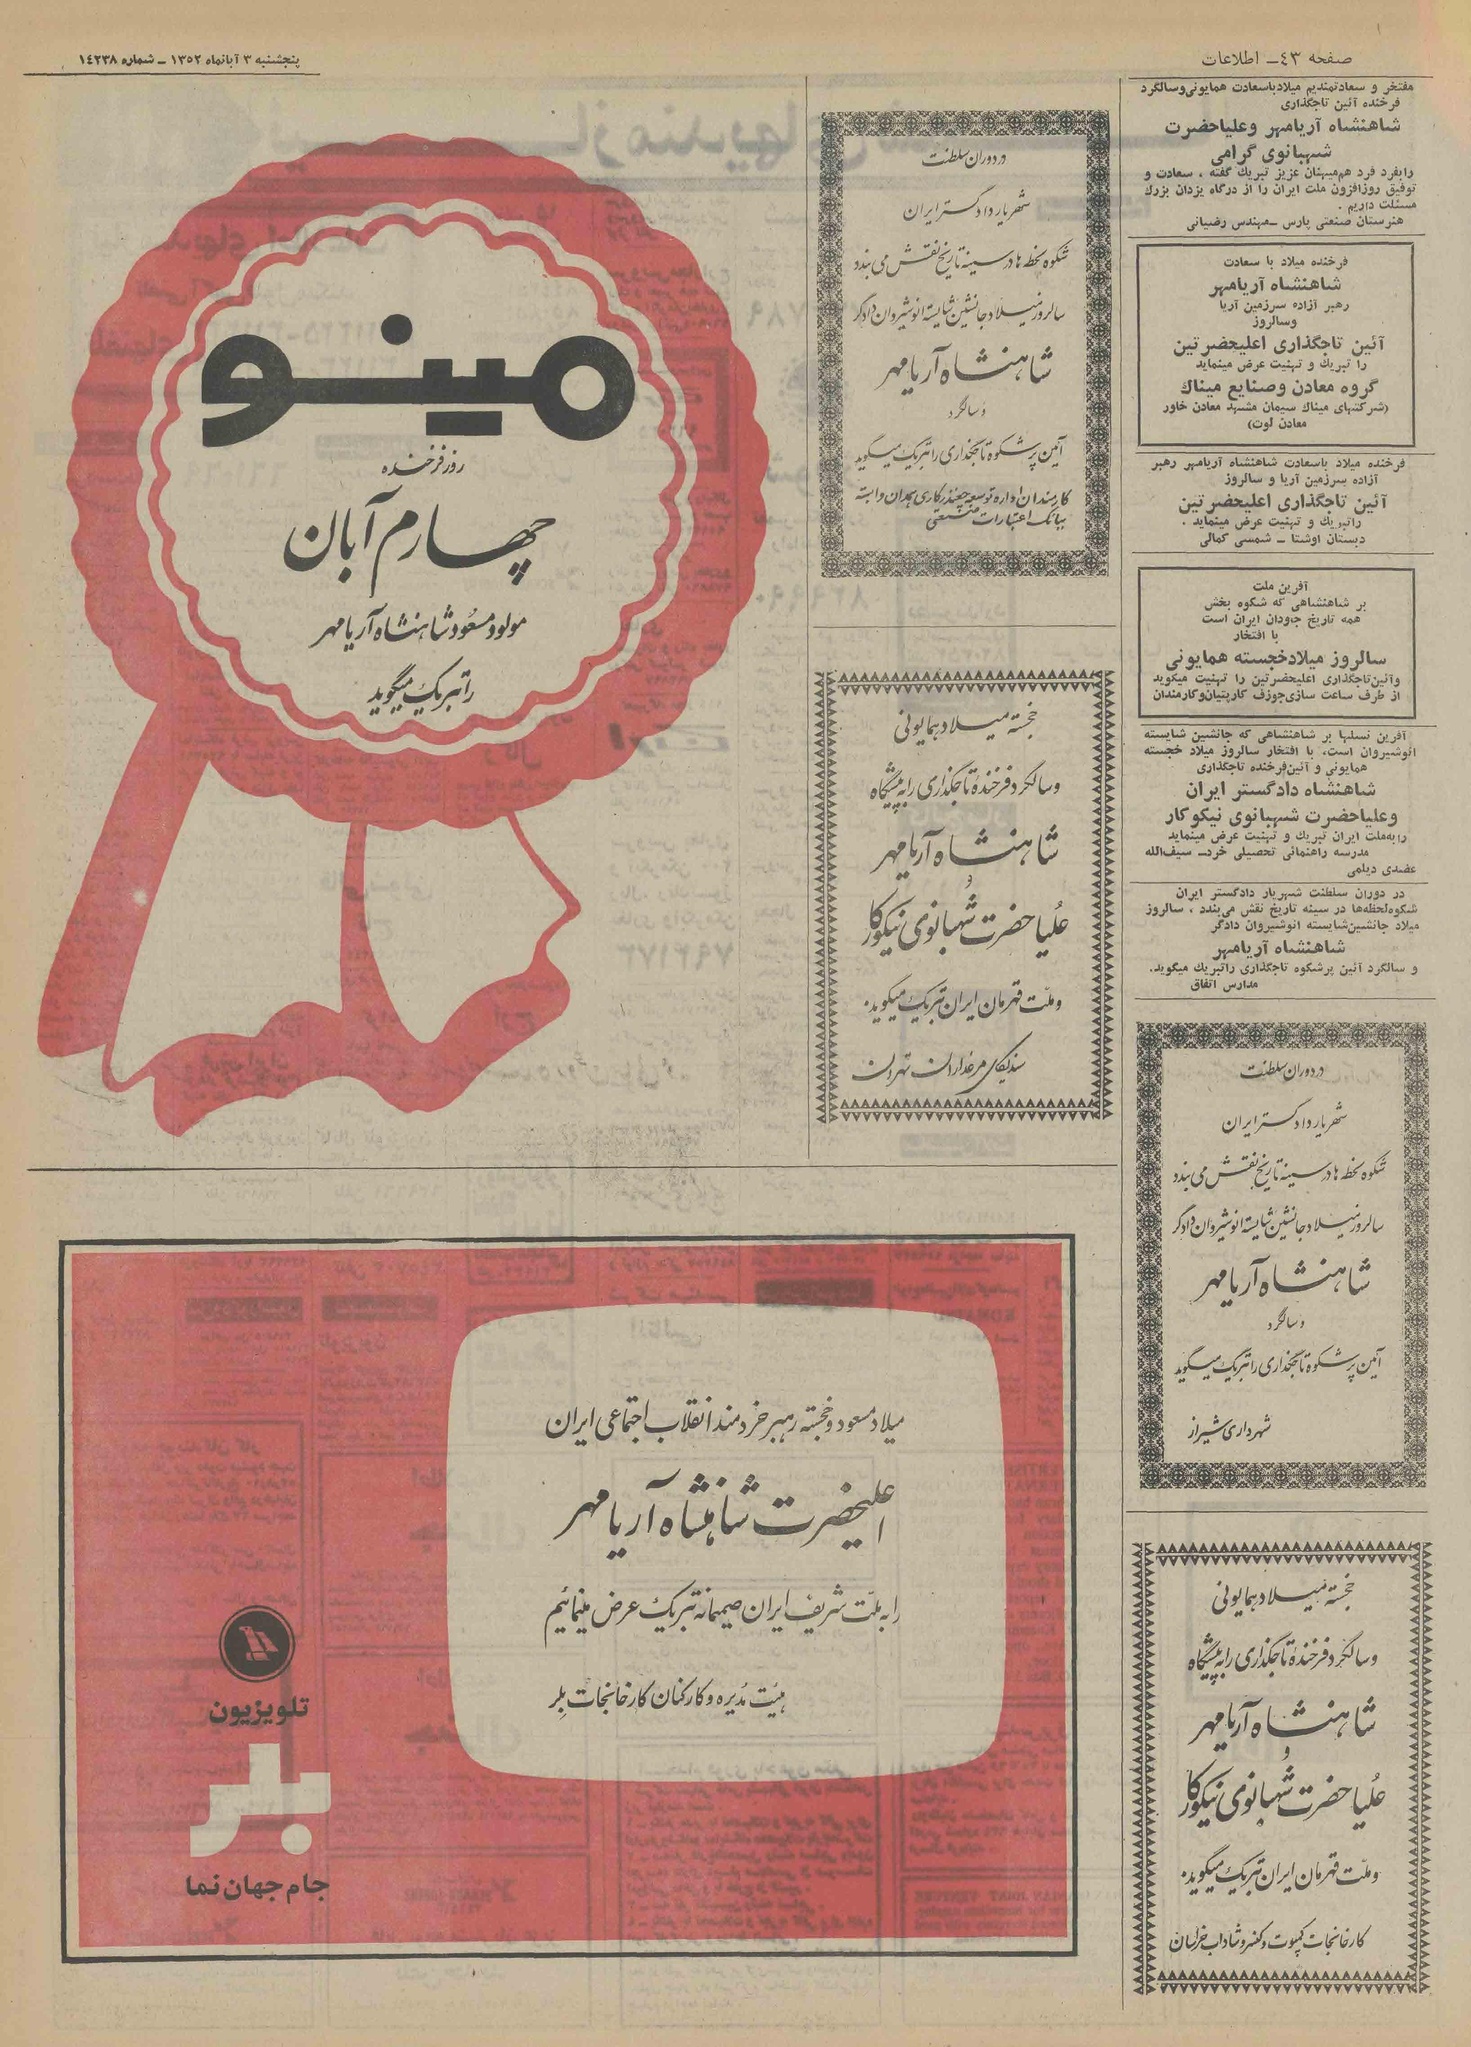 صفحه ٤٣ــ اطلاعات
پنجشنبه ٣ آبانماه ١٣٥٢ ــ شماره ١٤٢٣٨
مفتخر و سعادتمندیم میلادباسعادت همایونی‌وسالگرد
فرخنده آئین تاجگذاری
شاهنشاه آریامهر وعلیاحضرت
شهبانوی گرامی
رابفرد فرد هم‌میهنان عزیز تبریك گفته ، سعادت و
توفیق روزافزون ملت ایران را از درگاه یزدان بزرك
مسئلت داریم .
هنرستان صنعتی پارس ــمهندس رضیانی
فرخنده میلاد با سعادت
شاهنشاه آریامهر
رهبر آزاده سرزمین آریا
وسالروز
آئین تاجگذاری اعلیحضرتین
را تبریك و تهنیت عرض مینماید
گروه معادن وصنایع میناك
(شرکتهای میناك سیمان مشهد معادن خاور
معادن لوت)
فرخنده میلاد باسعادت شاهنشاه آریامهر رهبر
آزاده سرزمین آریا و سالروز
آئین تاجگذاری اعلیحضرتین
راتبریك و تهنیت عرض مینماید .
دبستان اوشتا ــ شمسی کمالی
آفرین ملت
بر شاهنشاهی که شکوه بخش
همه تاریخ جاودان ایران است
با افتخار
سالروز میلادخجسته همایونی
وآئین‌تاجگذاری اعلیحضرتین را تهنیت میگوید
از طرف ساعت سازی‌جوزف کارپتیان‌وکارمندان
آفرین نسلها بر شاهنشاهی که جانشین شایسته
انوشیروان است، با افتخار سالروز میلاد خجسته
همایونی و آئین‌فرخنده تاجگذاری
شاهنشاه دادگستر ایران
وعلیاحضرت شهبانوی نیکوکار
رابه‌ملت ایران تبریك و تهنیت عرض مینماید
مدرسه راهنمائی تحصیلی خردــ سیف‌الله
عضدی دیلمی
در دوران سلطنت شهریار دادگستر ایران
شکوه‌لحظه‌ها در سینه تاریخ نقش می‌بندد ، سالروز
میلاد جانشین‌شایسته انوشیروان دادگر
شاهنشاه آریامهر
و سالگرد آئین پرشکوه تاجگذاری راتبریك میگوید.
مدارس اتفاق
در دوران سلطنت
شهریار دادگستر ایران
شکوه لحظه ها در سینه تاریخ نقش می بندد
سالروز میلاد جانشین شایسته انوشیروان دادگر
شاهنشاه آریامهر
و سالگرد
آئین پرشکوه تاجگذاری را تبریک میگوید
شهرداری شیراز
خجسته میلاد همایونی
و سالگرد فرخنده تاجگذاری را به پیشگاه
شاهنشاه آریامهر
و
علیاحضرت شهبانوی نیکوکار
و ملت قهرمان ایران تبریک میگوید.
کارخانجات کمپوت و کنسرو شاداب خراسان
در دوران سلطنت
شهریار دادگستر ایران
شکوه لحظه ها در سینه تاریخ نقش می بندد
سالروز میلاد جانشین شایسته انوشیروان دادگر
شاهنشاه آریامهر
و سالگرد
آئین پرشکوه تاجگذاری را تبریک میگوید
کارمندان اداره توسعه چغندرکاری همدان وابسته
ببانک اعتبارات صنعتی
خجسته میلاد همایونی
و سالگرد فرخنده تاجگذاری را به پیشگاه
شاهنشاه آریامهر
و
علیاحضرت شهبانوی نیکوکار
و ملت قهرمان ایران تبریک میگوید.
سندیکای مرغداران تهران
مینو
روز فرخنده
چهارم آبان
مولود مسعود شاهنشاه آریامهر
را تبریک میگوید
میلاد مسعود و خجسته رهبر خردمند انقلاب اجتماعی ایران
اعلیحضرت شاهنشاه آریامهر
را به ملت شریف ایران صمیمانه تبریک عرض مینمائیم
هیئت مدیره و کارکنان کارخانجات بلر
تلویزیون
بلر
جام جهان نما